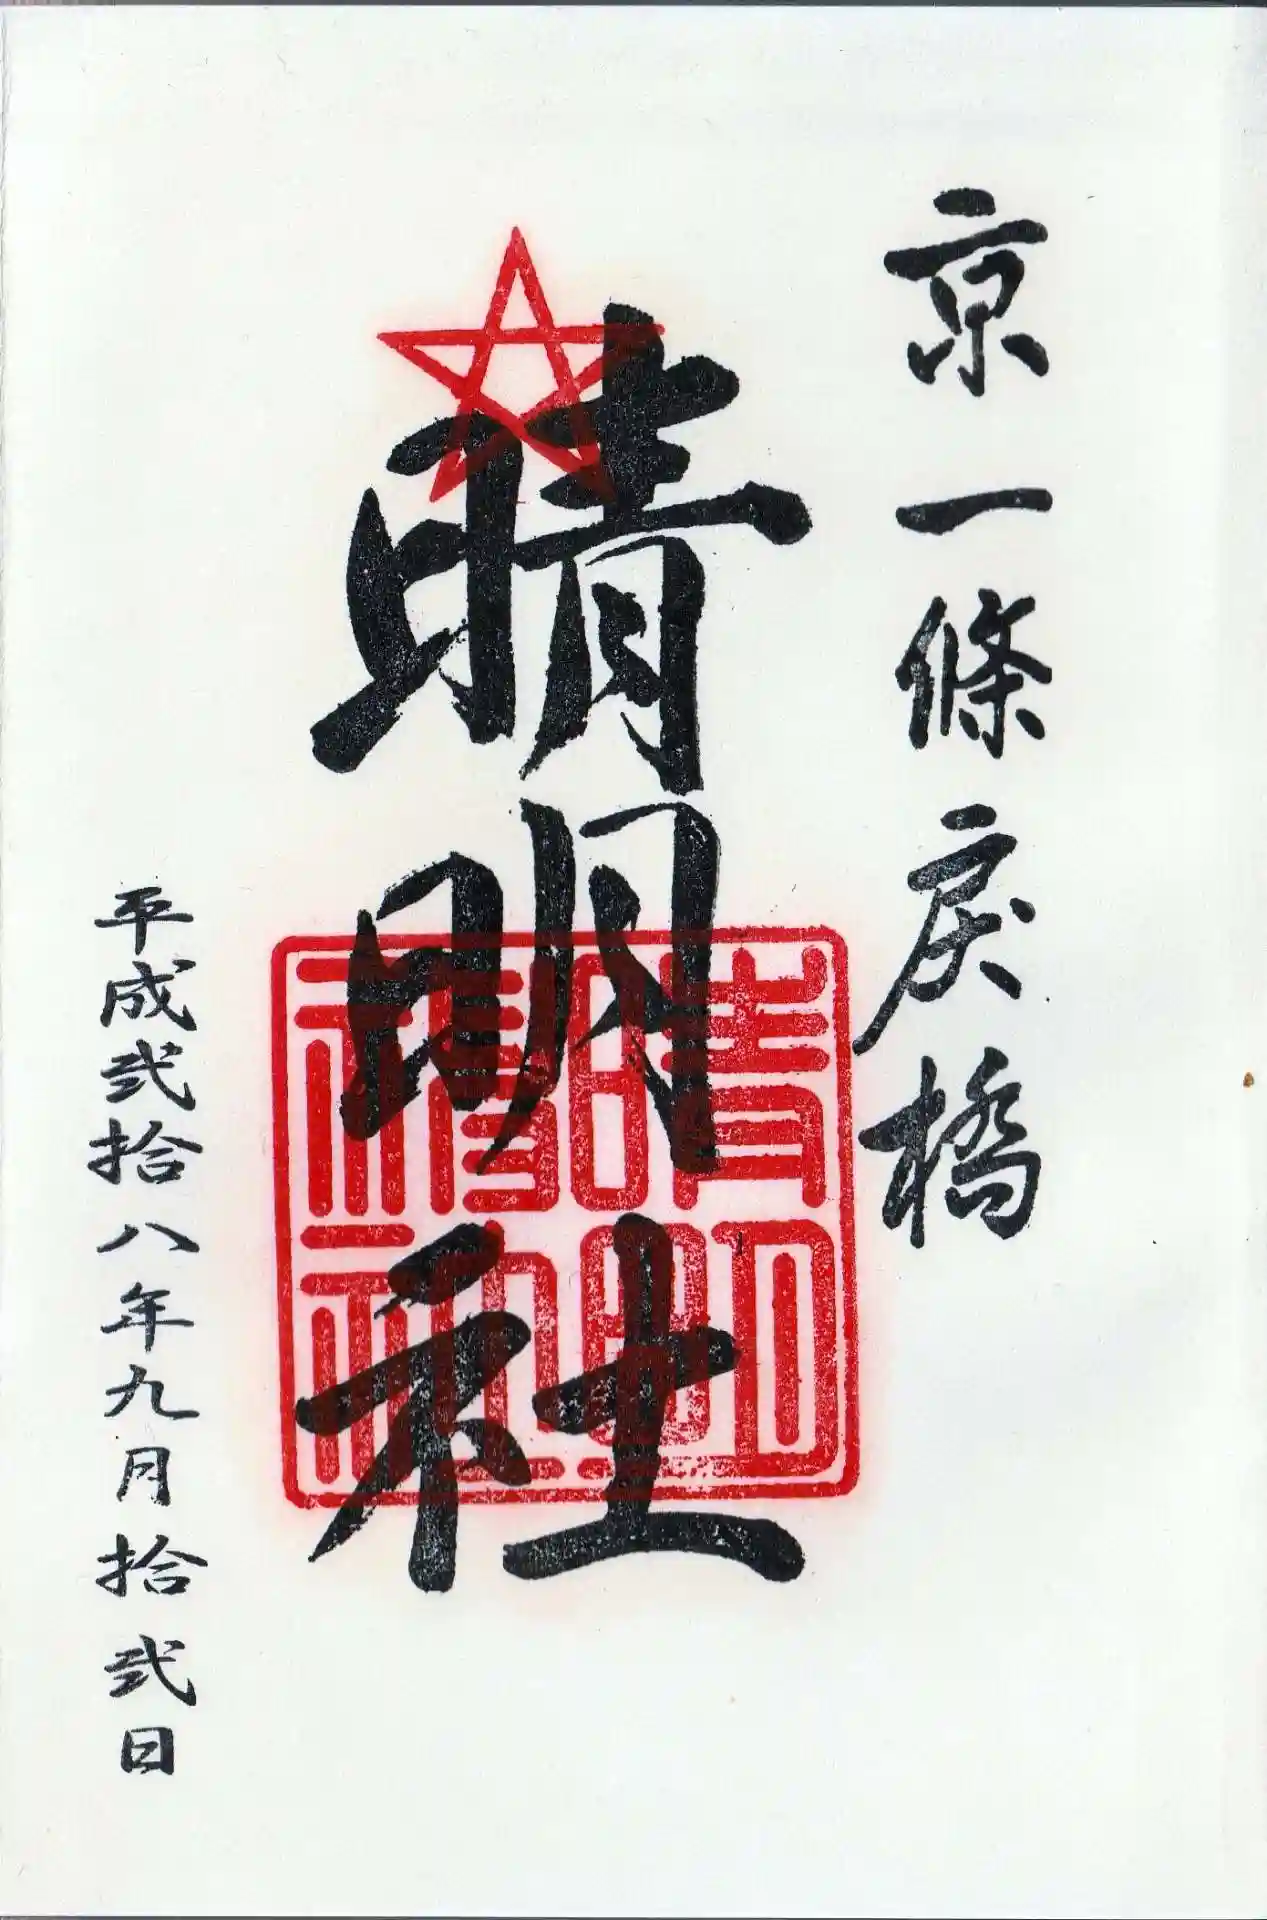 京一條戻橋
晴明社
晴明神社
平成弐拾八年九月拾弐日